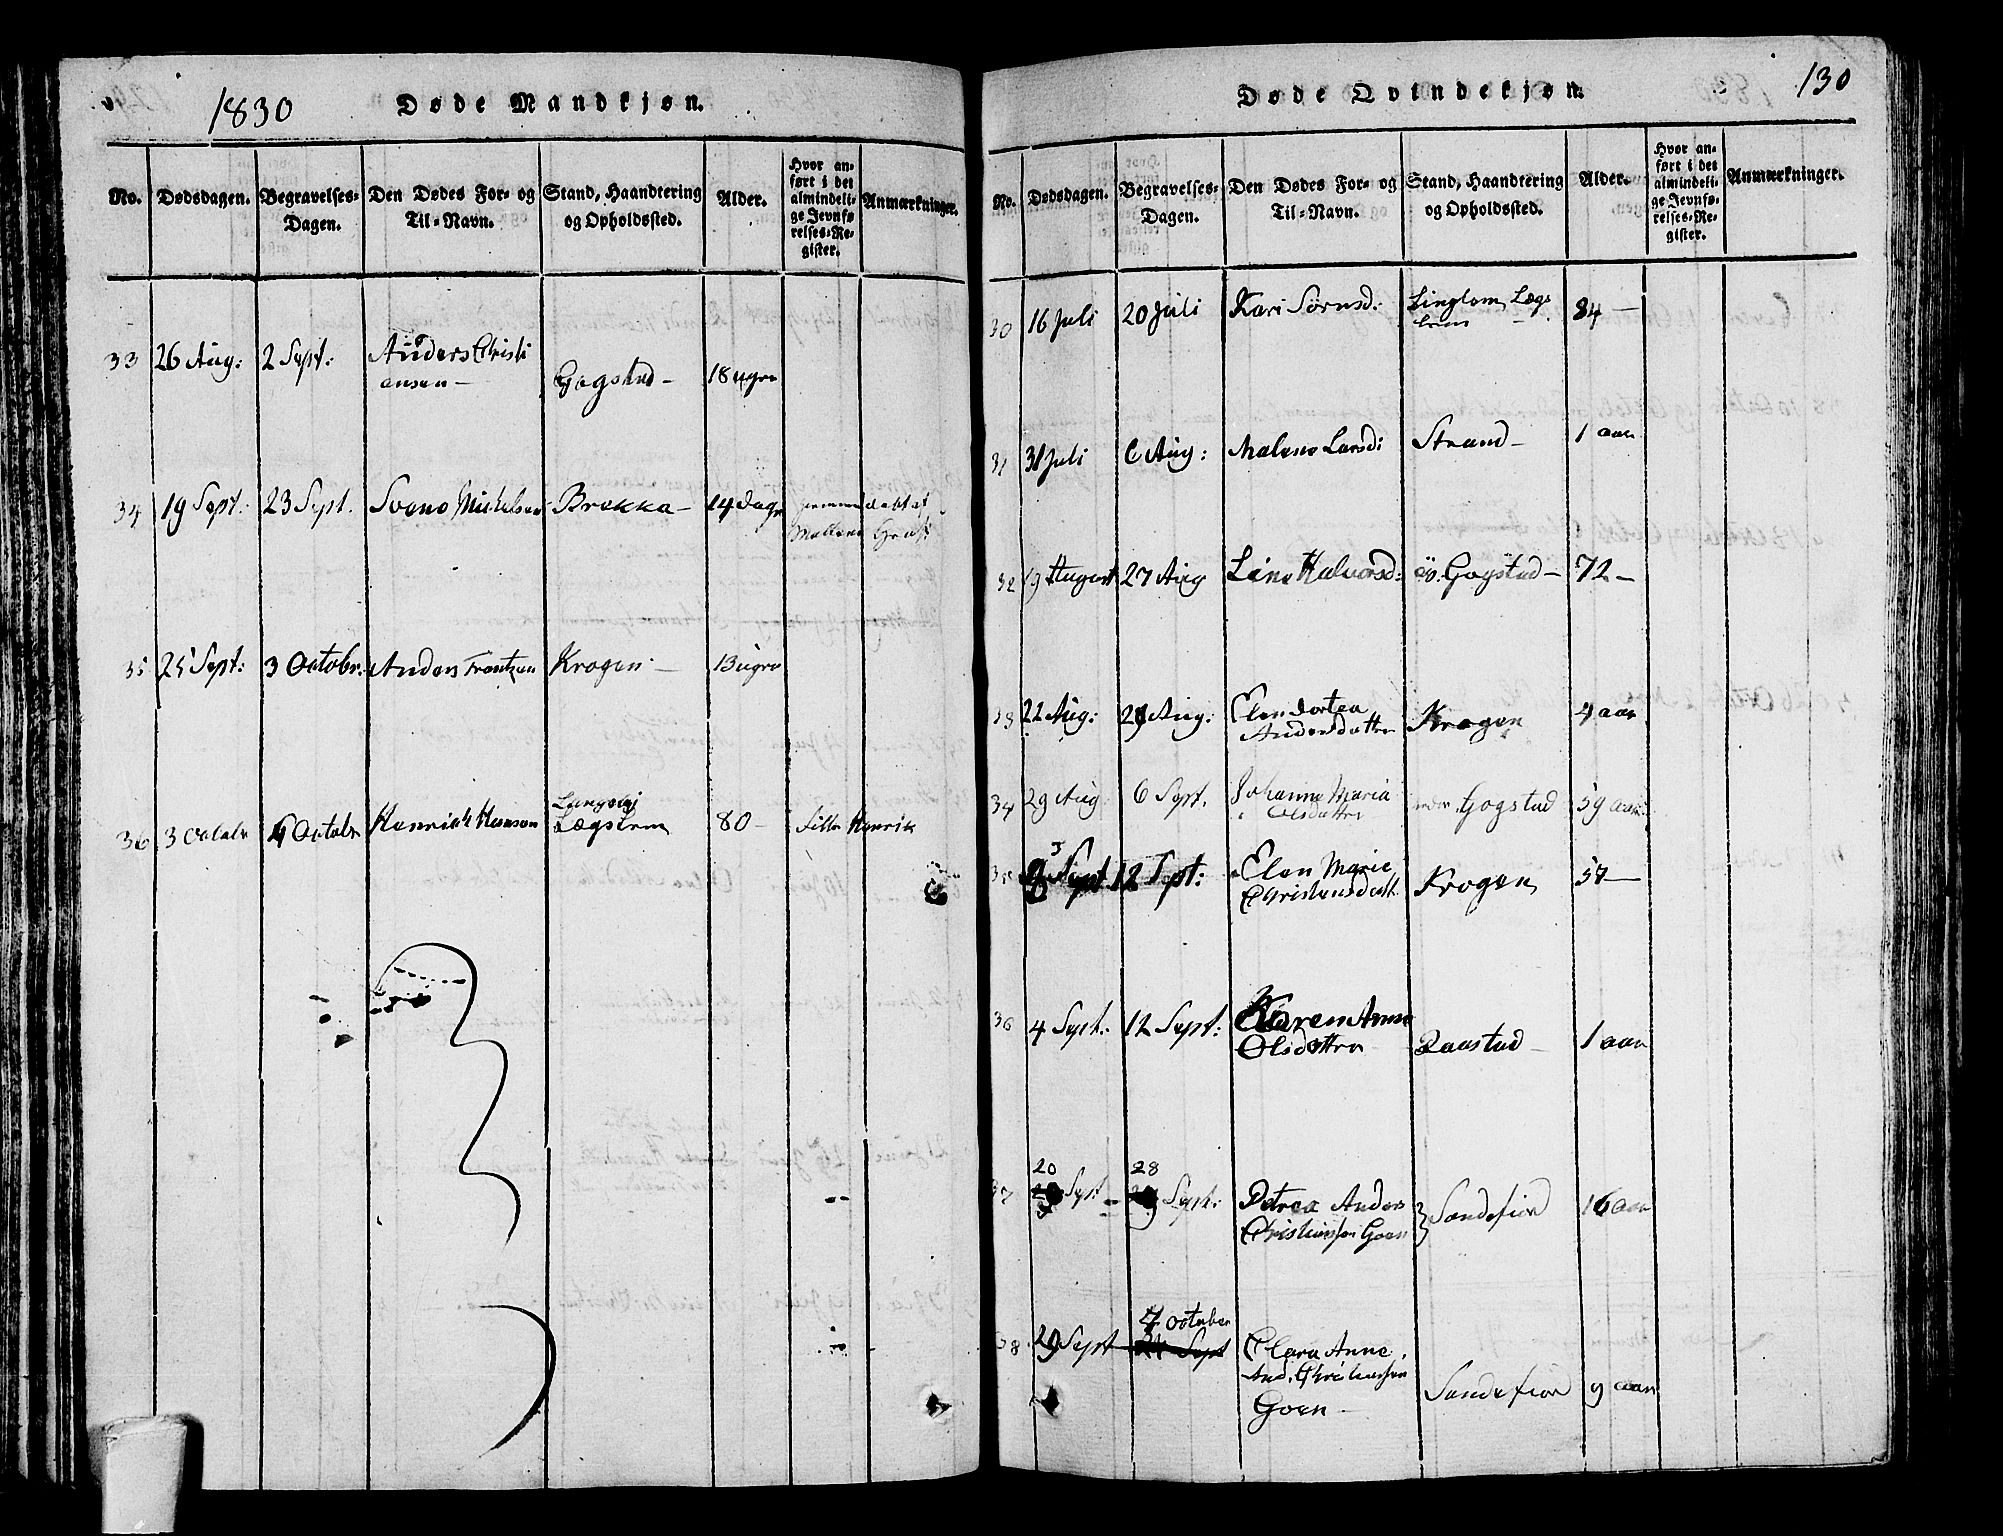 1830 Døde Mandkjøn.
No. Dødsdagen. Begravelses-Dagen. Den Dødes For- og Til-Navn. Stand, Haandtering og Opholdssted. Alder. Hvor anført i det almindelige Jevnførelses-Register. Anmærkninger.
33 26 Aug: 2 Sept: Anders Christi
ansen – Gogstad – 18 uger
34 19 Sept: 23 Sept. Svend Michelsen Brekka – 14 dage
35 25 Sept: 3 Octobr: Anders Frantzen Krogen – 13 uger
36 3 Octobr 4 Octobr Henrich Hansen
Lægslem 80 – Lille Henrik
130
Døde Qvindekjøn.
No. Dødsdagen. Begravelses-Dagen. Den Dødes For- og Til-Navn. Stand, Haandtering og Opholdssted. Alder. Hvor anført i det almindelige Jevnførelses-Register. Anmærkninger.
30 16 Juli 20 Juli Kari Sørnsd: Lægs
lem – 84 –
31 31 Juli 6 Aug: Malene Larsd: Strand – 1 aar
32 19 August 27 Aug Line Halvorsd: öv. Gogstad – 72 –
33 22 Aug: 28 Aug: Elen Dortea
Andersdatter Krogen 4 aar
34 29 Aug 6 Sept. Johanne Maria
Olsdatter Gogstad 59 aar
35 Sept 12 Sept: Elen Marie
Christensdatt. Krogen 57 –
36 4 Sept: 12 Sept: Karen Anne
Olsdatter Raastad – 1 aar
37 20 Sept – 28 Sept: Petrea Anders
Christiansen Goen } Sandefior 16 aar
38 29 Sept 4 October Sept Clara Anne
And. Christiansen
Goen – Sandefior 9 aar